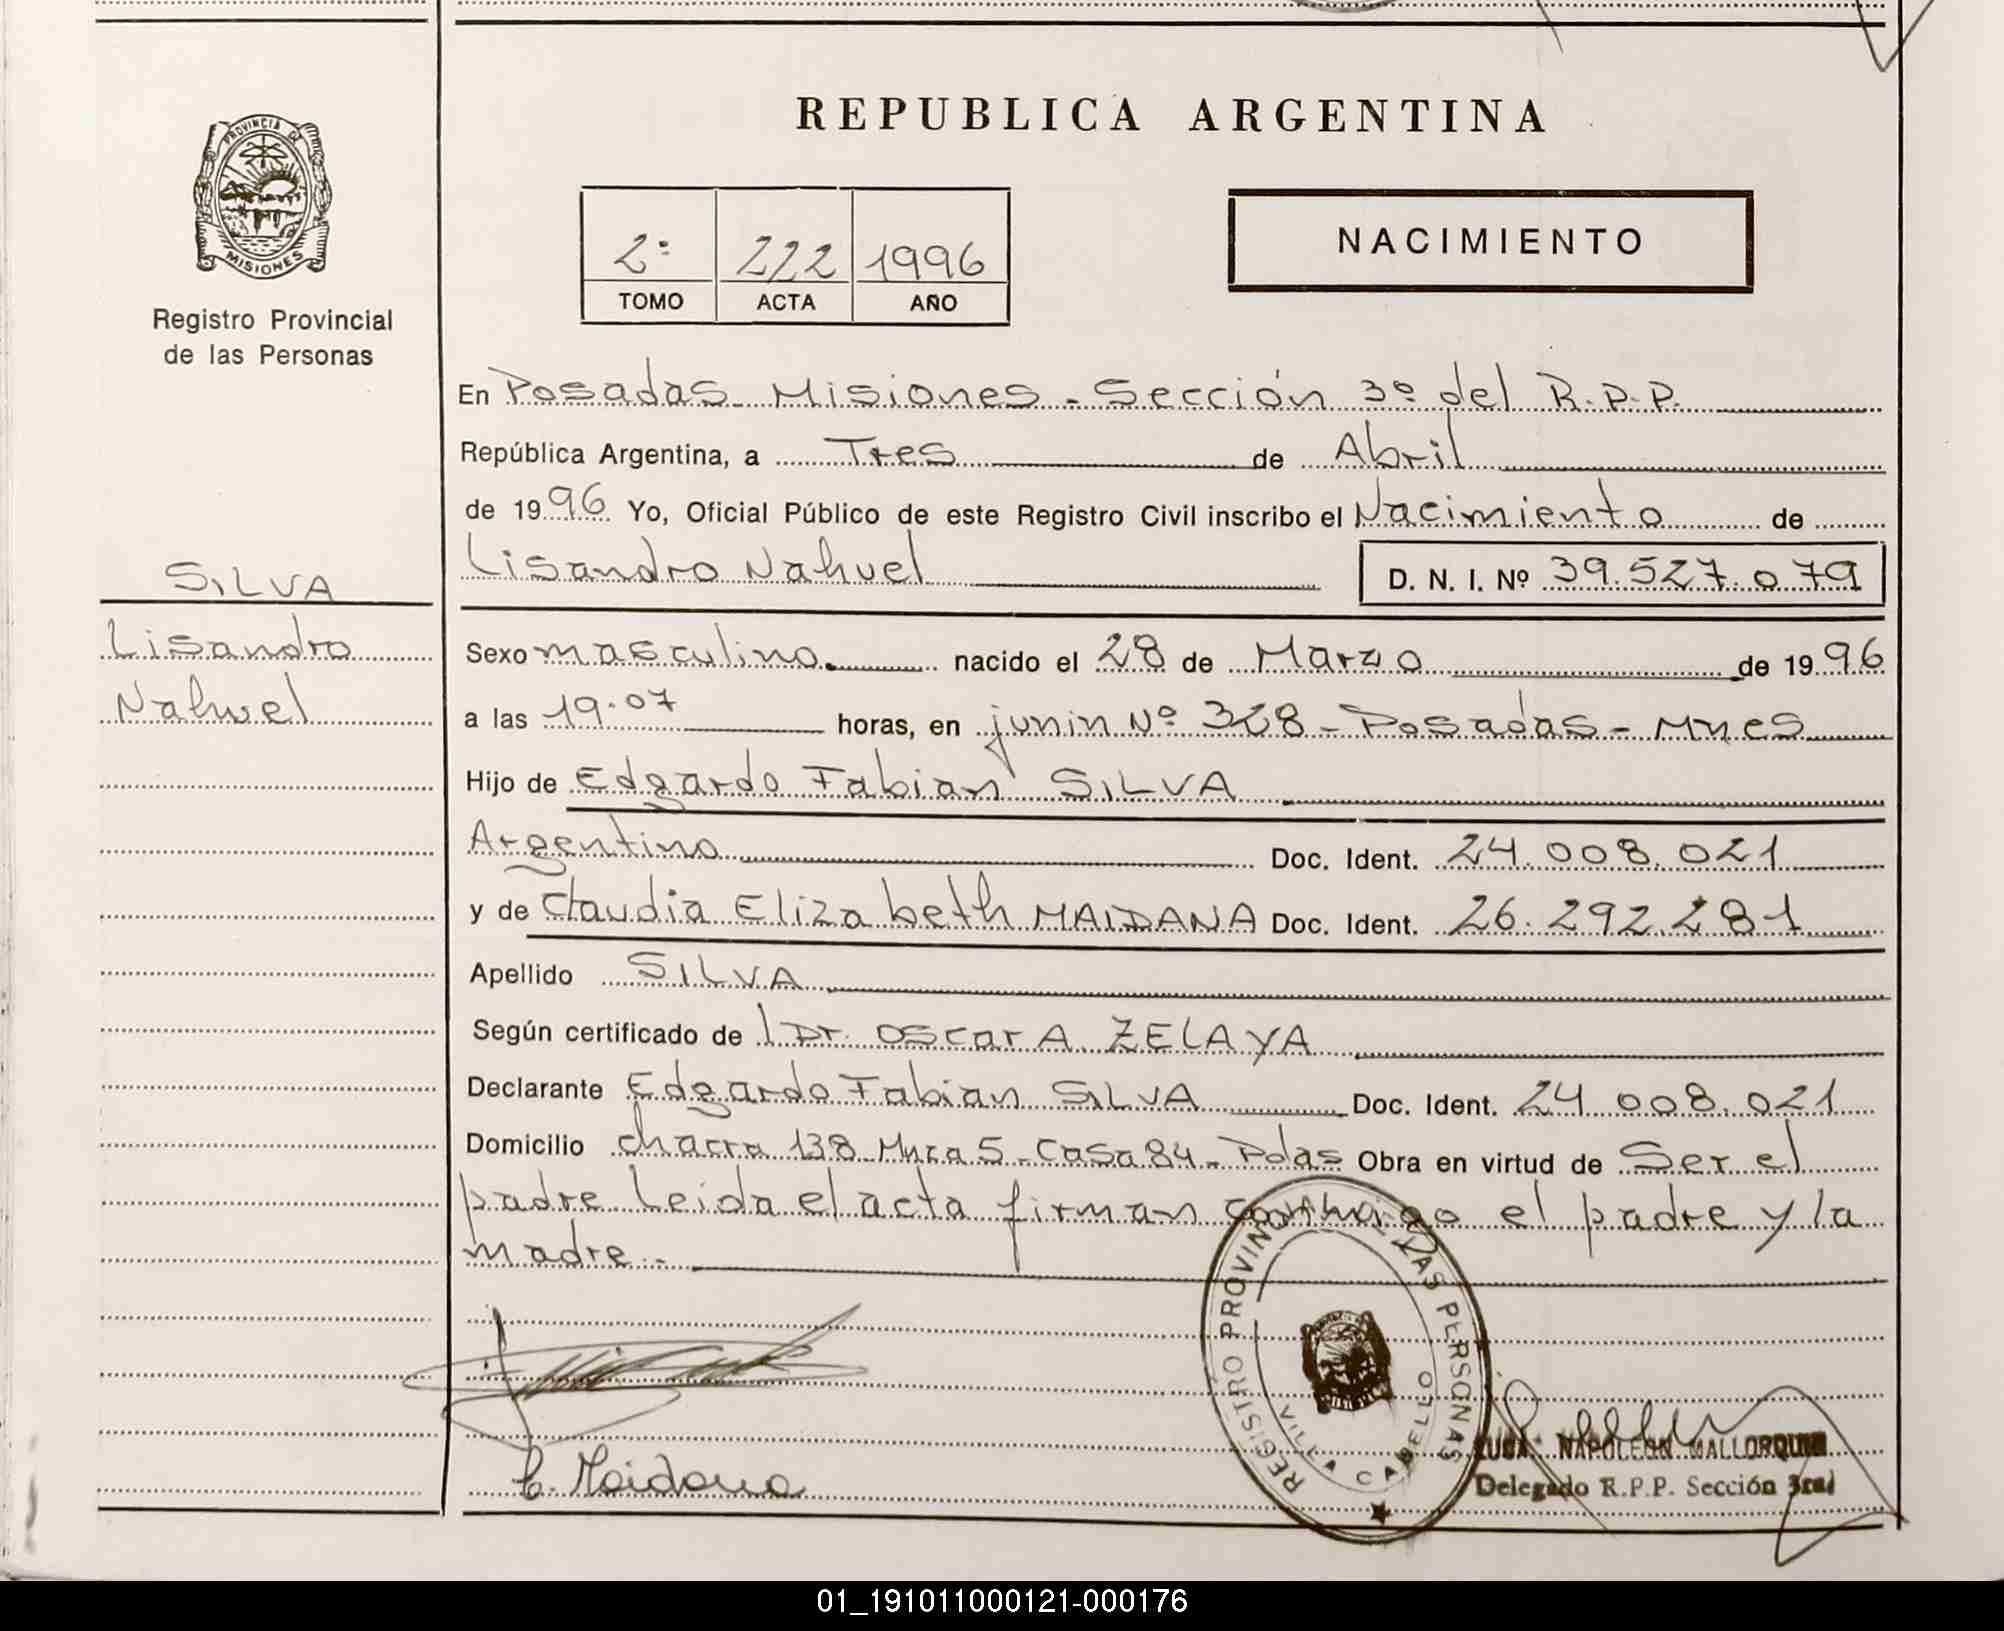 REPUBLICA ARGENTINA
PROVINCIA DE MISIONES
Registro Provincial
de las Personas
2º 222 1996
TOMO ACTA AÑO
NACIMIENTO
En Posadas Misiones - Sección 3º del R.P.P.
República Argentina, a Tres de Abril
de 1996 Yo, Oficial Público de este Registro Civil inscribo el Nacimiento de
Lisandro Nahuel D. N. I. Nº 39.527.079
SILVA
Lisandro
Nahuel
Sexo masculino. nacido el 28 de Marzo de 1996
a las 19.07 horas, en junin Nº 328 - Posadas - Mnes
Hijo de Edgardo Fabian SILVA
Argentino Doc. Ident. 24.008.021
y de Claudia Elizabeth MAIDANA Doc. Ident. 26.292.281
Apellido SILVA
Según certificado de l Dr. Oscar A. ZELAYA
Declarante Edgardo Fabian SILVA Doc. Ident. 24 008.021
Domicilio chacra 138 Mnza 5 - Casa 84 - Pdas Obra en virtud de Ser el
padre Leida el acta firman conmigo el padre y la
madre.-
REGISTRO PROVINCIAL DE LAS PERSONAS
VILLA CABELLO
C. Maidana
NAPOLEON MALLORQUIN
Delegado R.P.P. Sección 3ra
01_191011000121-000176